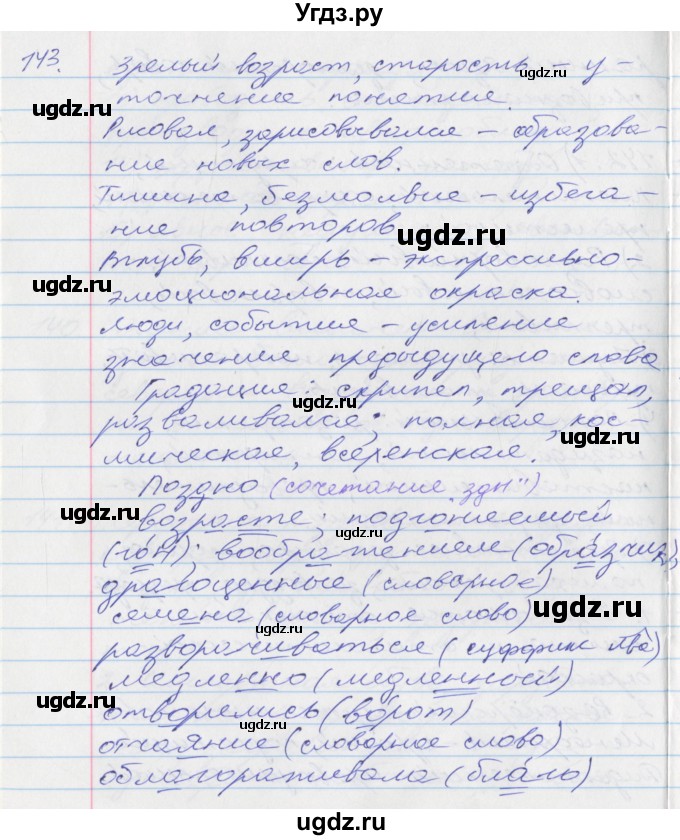 Угдз.ру
143. Зрелый возраст, старость – у-
точнение понятия.
ugdz.ru ugdz.ru
Рисовал, зарисовывался – образова-
ние новых слов.
ugdz.ru
Тишина, безмолвие – избега-
ние повторов.
ugdz.ru
Вглубь, вширь – экспрессивно-
ugdz.ru
эмоциональная окраска.
Люди, события – усиление
значения предыдущего слова
Градация: скрипел, трещал,
ugdz.ru
разваливался; полная, кос-
мическая, вселенская.
ugdz.ru
Поздно (сочетание „здн")
ugdz.ru
возрасте; подгоняемый
(гон); воображением (образчик),
драгоценные (словарное)
семена (словарное слово)
ugdz.ru
разворачиваться (суффикс ива)
медленно (медленный)
ugdz.ru
отворились (ворот)
отчаяние (словарное слово)
ugdz.ru
облагораживала (благо)
Угдз.ру